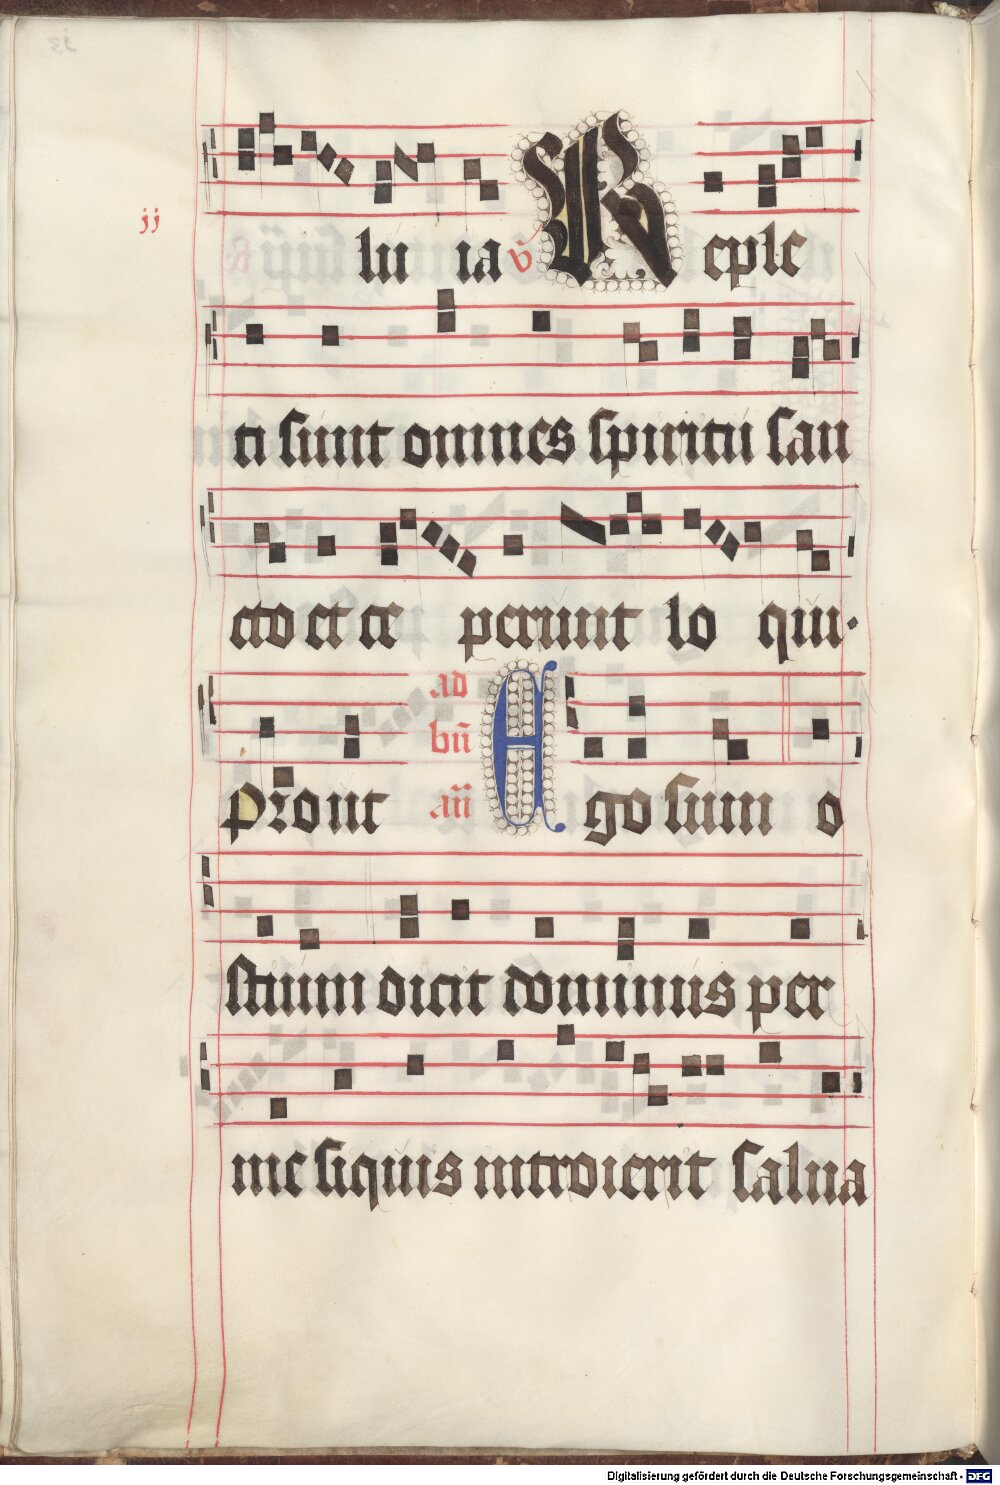 jj
lu ia v Reple
ti sunt omnes spiritu san
cto et ce perunt lo qui·
Pront ad bn̄ an̄ Ego sum o
stium dicit dominus per
me siquis introierit salua
Digitalisierung gefördert durch die Deutsche Forschungsgemeinschaft - DFG